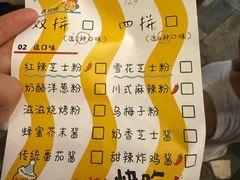 双拼 □ 四拼 □
(选2种口味) (选4种口味)
02 选口味
红辣芝士粉 □ 雪花芝士粉 □
奶酪洋葱粉 □ 川式麻辣粉 □
滋滋烧烤粉 □ 乌梅子粉 □
蜂蜜芥末酱 □ 奶香芝士酱 □
传统番茄酱 □ 甜辣炸鸡酱 □